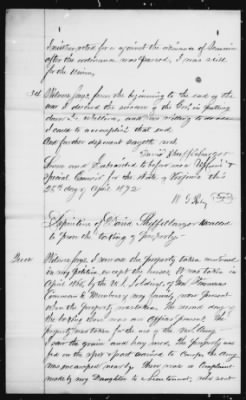 I neither voted for or against the ordinance of Secession
after the ordinance was passed, I was still
for the Union,
3d Witness says from the beginning to the end of the
war I desired the success of the Govt in putting
down the rebellion, and was willing to
to accomplish that end
And further deponent sayeth not.
David
Sworn and Subscribed to before me a
Special Comr for the State of Virginia this
25th day of April 1872
Deposition of David recalled
to prove the taking of Property
Ques Witness says I saw the property taken mentioned
in my Petition, except the horses. It was taken in
April 1862 by the U.S. Soldiers, of Genl
Command & Members of my family were present
when the property was taken. The second day of
the taking there was an Officer present. The
property was taken for the use of the Army
I saw the grain and hay used. The property was
fed on the spot & part carried to Camps. the Army
was encamped nearby. There was a Complaint
made by my Daughter to a Lieutenant, who sent